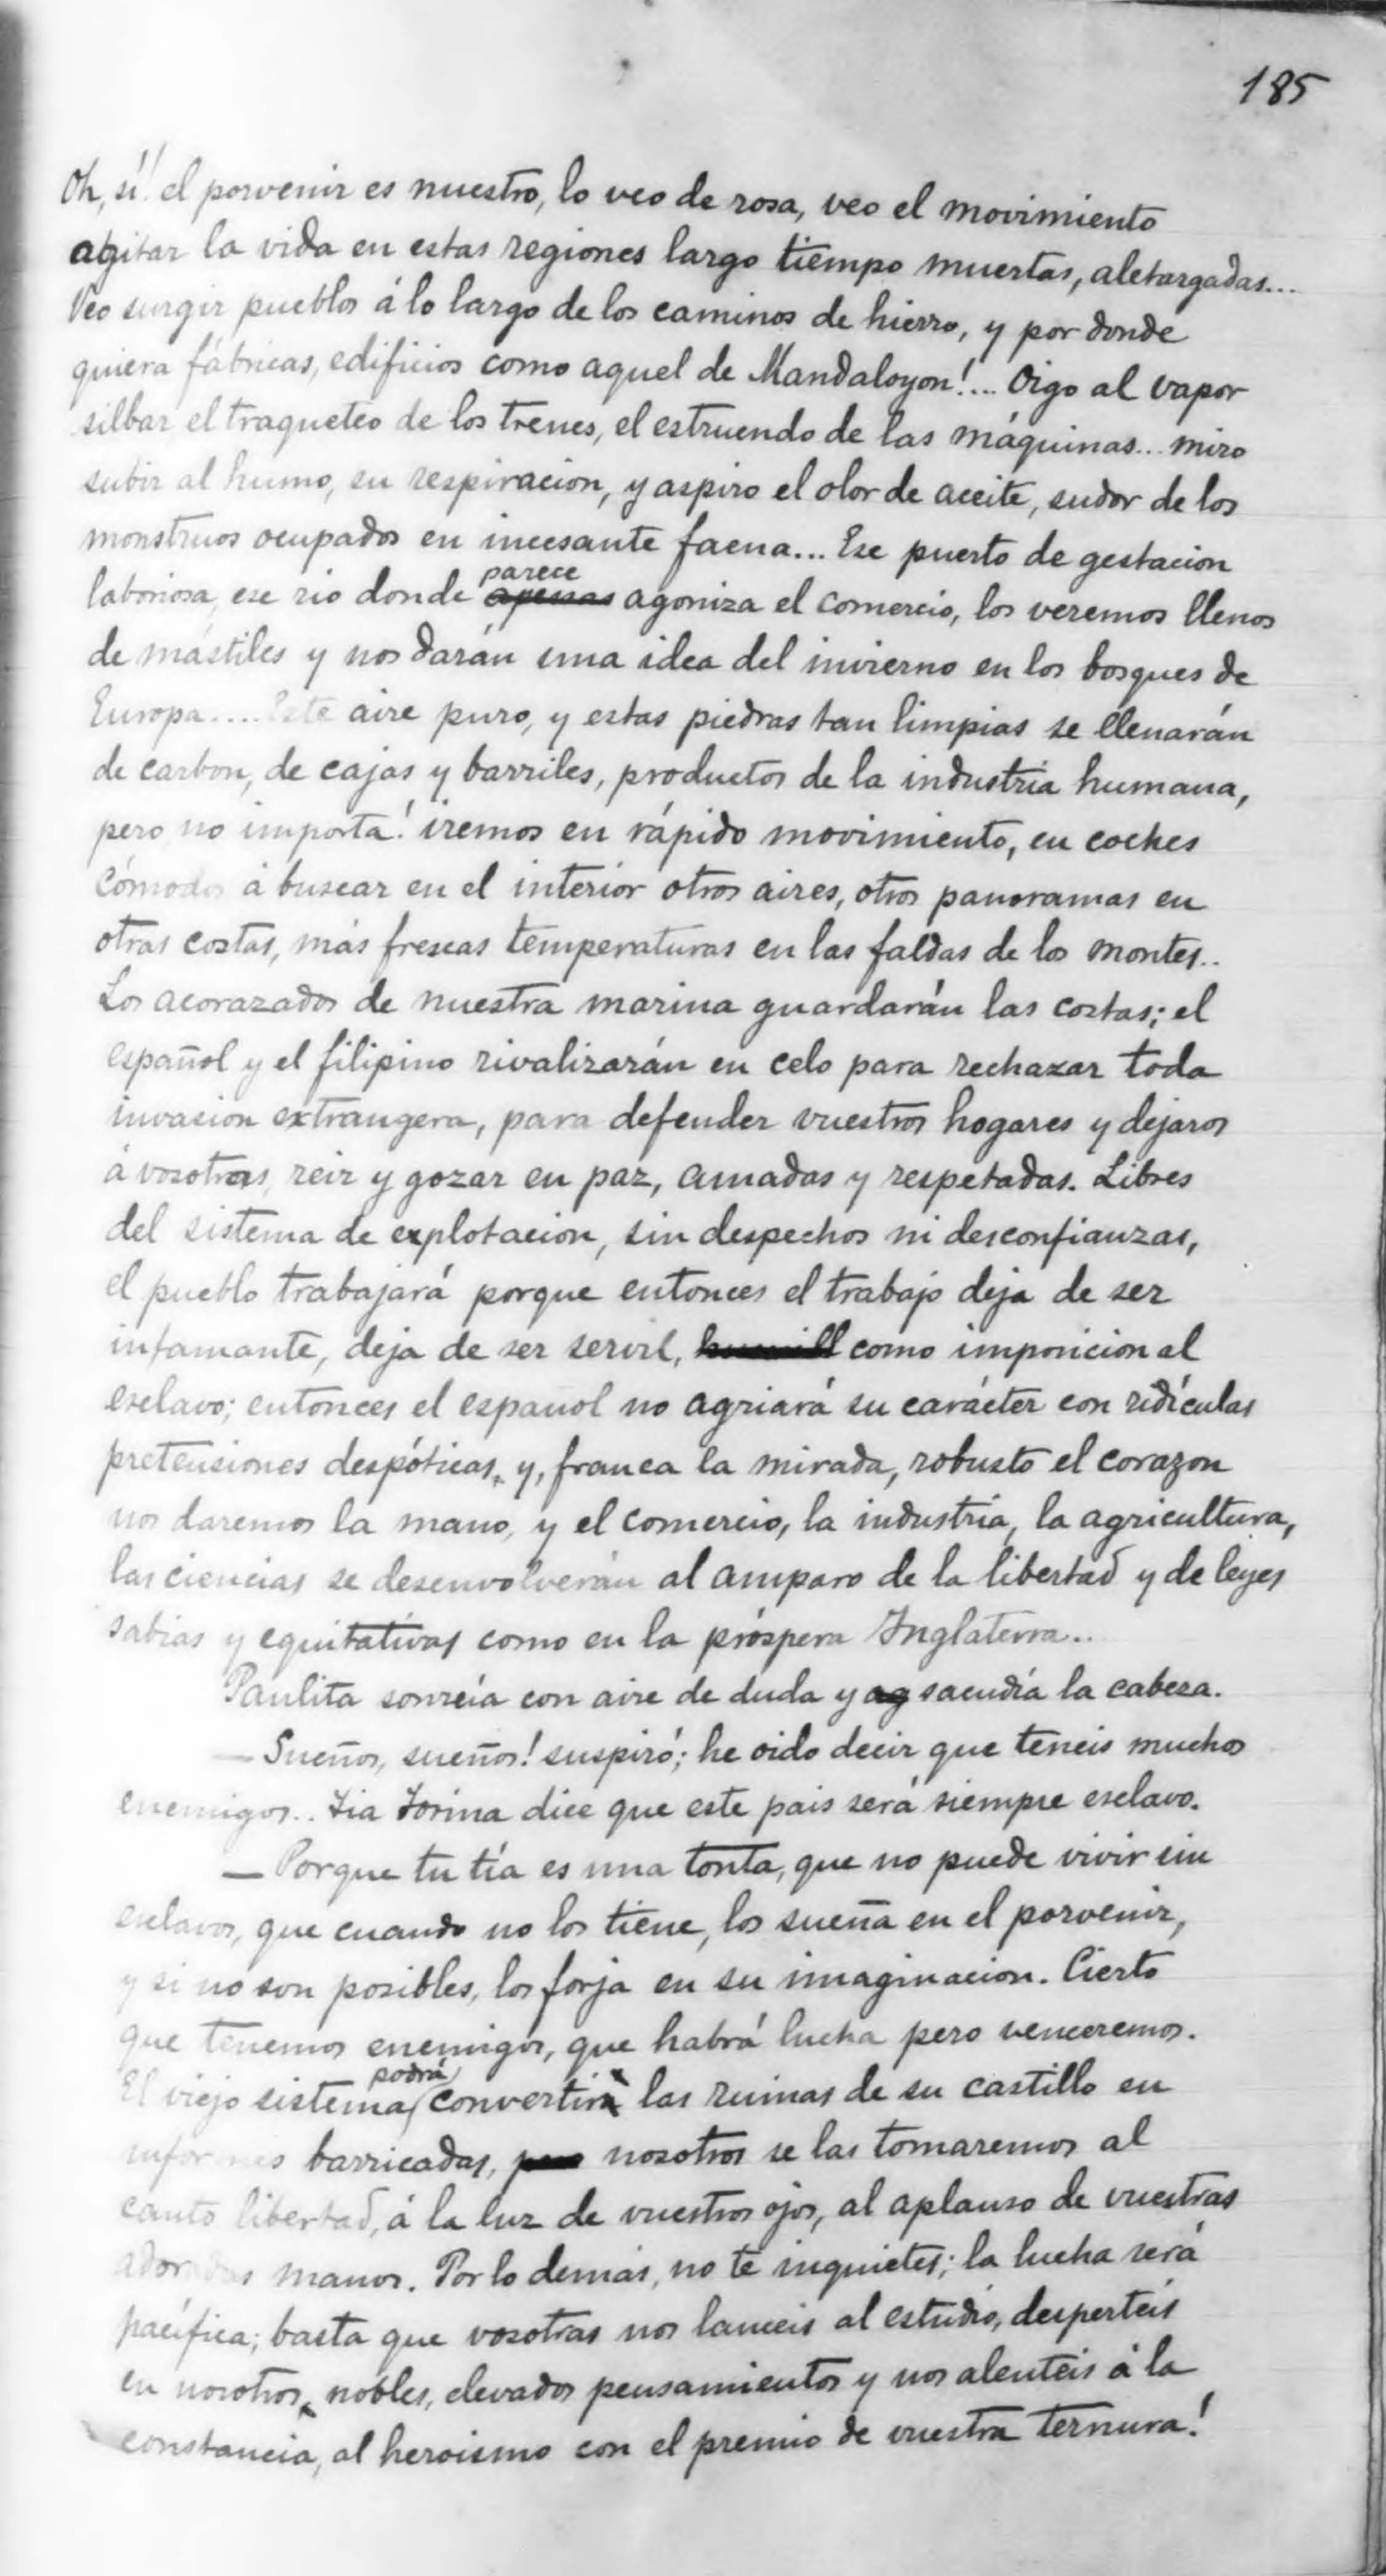 185
Oh, sí! el porvenir es nuestro, lo veo de rosa, veo el movimiento
agitar la vida en estas regiones largo tiempo muertas, aletargadas...
Veo surgir pueblos á lo largo de los caminos de hierro, y por donde
quiera fábricas, edificios como aquel de Mandaloyon!... Oigo al vapor
silbar el traqueteo de los trenes, el estruendo de las máquinas... miro
subir al humo, su respiracion, y aspiro el olor de aceite, sudor de los
monstruos ocupados en incesante faena... Ese puerto de gestacion
parece
laboriosa, ese rio donde apenas agoniza el comercio, los veremos llenos
de mástiles y nos darán una idea del invierno en los bosques de
Europa.... Este aire puro, y estas piedras tan limpias se llenarán
de carbon, de cajas y barriles, productos de la industria humana,
pero no importa! iremos en rápido movimiento, en coches
cómodos á buscar en el interior otros aires, otros panoramas en
otras costas, más frescas temperaturas en las faldas de los montes..
Los acorazados de nuestra marina guardarán las costas; el
español y el filipino rivalizarán en celo para rechazar toda
invasion extrangera, para defender vuestros hogares y dejaros
á vosotras, reir y gozar en paz, amadas y respetadas. Libres
del sistema de explotacion, sin despechos ni desconfianzas,
el pueblo trabajará porque entonces el trabajo deja de ser
infamante, deja de ser servil, como imposicion al
esclavo; entonces el español no agriará su carácter con ridículas
pretensiones despóticas, y, franca la mirada, robusto el corazon
nos daremos la mano, y el comercio, la industria, la agricultura,
las ciencias se desenvolverán al amparo de la libertad y de leyes
sabias y equitativas como en la próspera Inglaterra..
Paulita sonreía con aire de duda y ag sacudía la cabeza.
— Sueños, sueños! suspiró; he oido decir que teneis muchos
enemigos.. Tia Torina dice que este pais será siempre esclavo.
— Porque tu tía es una tonta, que no puede vivir sin
esclavos, que cuando no los tiene, los sueña en el porvenir,
y si no son posibles, los forja en su imaginacion. Cierto
que tenemos enemigos, que habrá lucha pero venceremos.
podrá
El viejo sistema convertir las ruinas de su castillo en
informes barricadas, nosotros se las tomaremos al
canto libertad, á la luz de vuestros ojos, al aplauso de vuestras
adoradas manos. Por lo demás, no te inquietes; la lucha será
pacífica; basta que vosotras nos lanceis al estudio, desperteis
en nosotros, nobles, elevados pensamientos y nos alenteis á la
constancia, al heroismo con el premio de vuestra ternura!